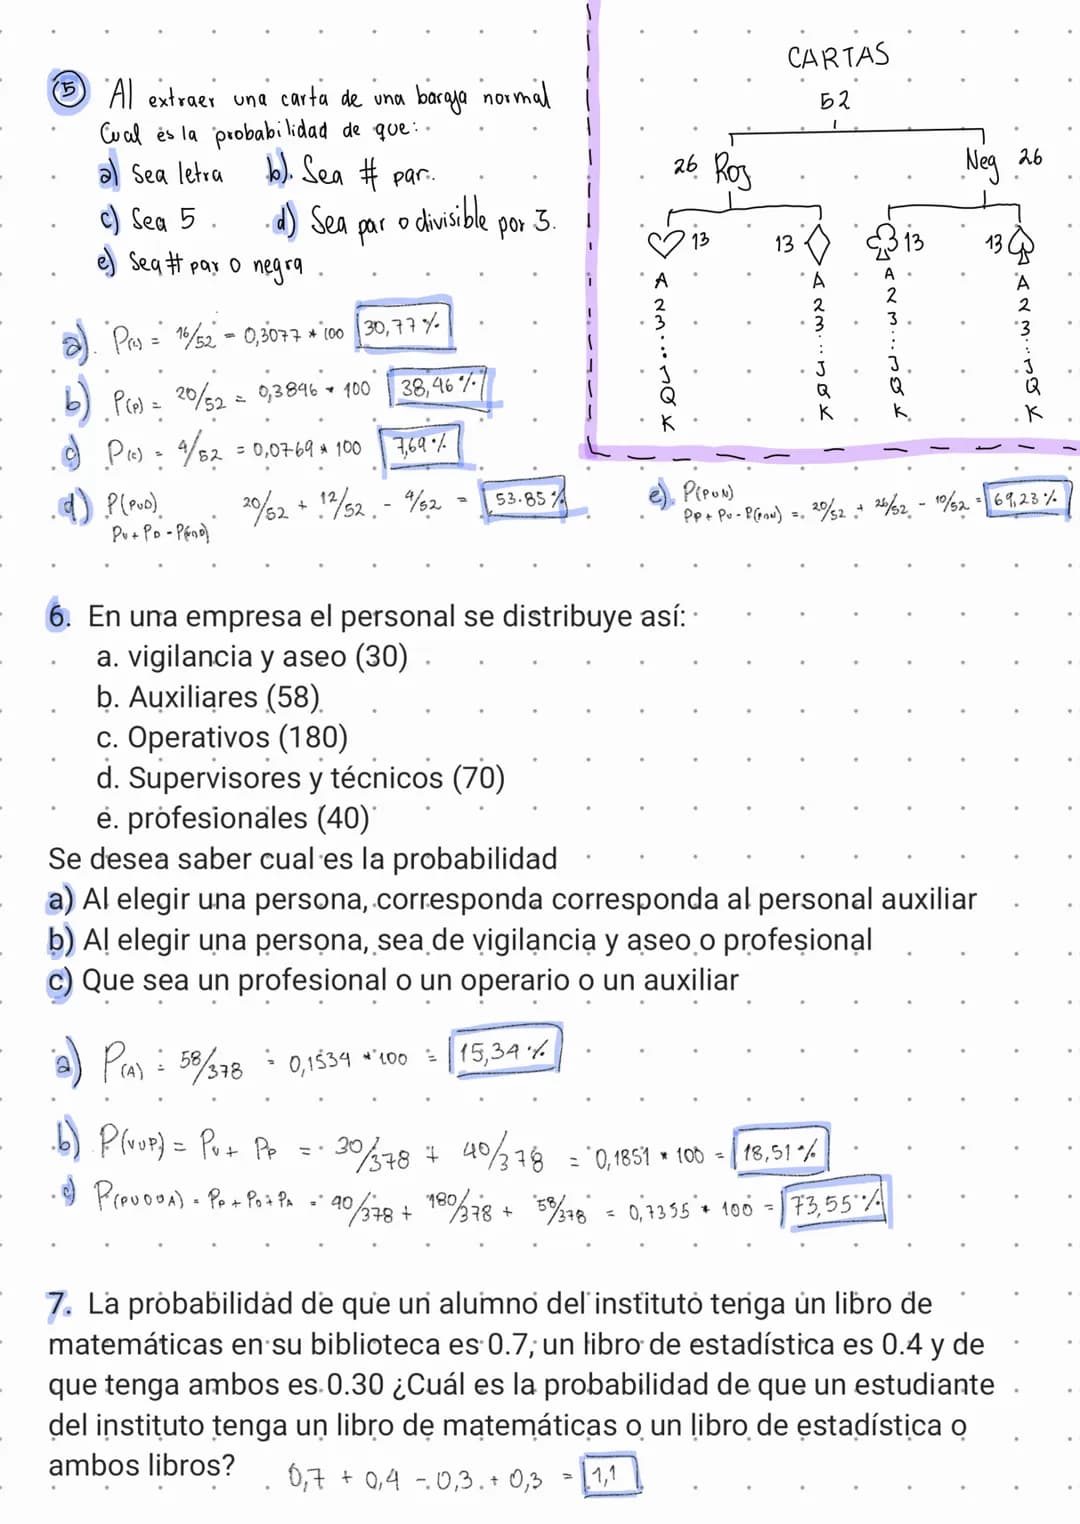 5 Al extraer una carta de una baraja normal
Cual es la probabilidad de que:
a) Sea letra b). Sea # par.
c) Sea 5 d) Sea par o divisible por 3.
e) Sea # par o negra
a). P(L) = 16/52 = 0,3077 * 100 30,77%
b) P(P) = 20/52 = 0,3846 * 100 38,46%
c) P(C) = 4/52 = 0,0769 * 100 7,69%
d) P(PUD) 20/52 + 12/52 - 4/52 = 53.85%
CARTAS
52
26 Roj Neg 26
♡ 13 13 ♢ ♧ 13 13 ♤
A A A A
2 2 2 2
3 3 3 3
J J J J
Q Q Q Q
K K K K
e). P(PUN)
Pp + PN - P(PnN) = 20/52 + 26/52 - 10/52 = 69,23%
6. En una empresa el personal se distribuye así:
a. vigilancia y aseo (30)
b. Auxiliares (58)
c. Operativos (180)
d. Supervisores y técnicos (70)
e. profesionales (40)
Se desea saber cual es la probabilidad
a) Al elegir una persona, corresponda corresponda al personal auxiliar
b) Al elegir una persona, sea de vigilancia y aseo o profesional
c) Que sea un profesional o un operario o un auxiliar
a) P(A) = 58/378 = 0,1534 * 100 = 15,34%
b) P(VUP) = Pv + Pp = 30/378 + 40/378 = 0,1851 * 100 = 18,51%
c) P(PUOUA) = Pp + Po + PA = 40/378 + 180/378 + 58/378 = 0,7355 * 100 = 73,55%
7. La probabilidad de que un alumno del instituto tenga un libro de
matemáticas en su biblioteca es 0.7; un libro de estadística es 0.4 y de
que tenga ambos es 0.30 ¿Cuál es la probabilidad de que un estudiante
del instituto tenga un libro de matemáticas o un libro de estadística o
ambos libros? 0,7 + 0,4 - 0,3 + 0,3 = 1,1